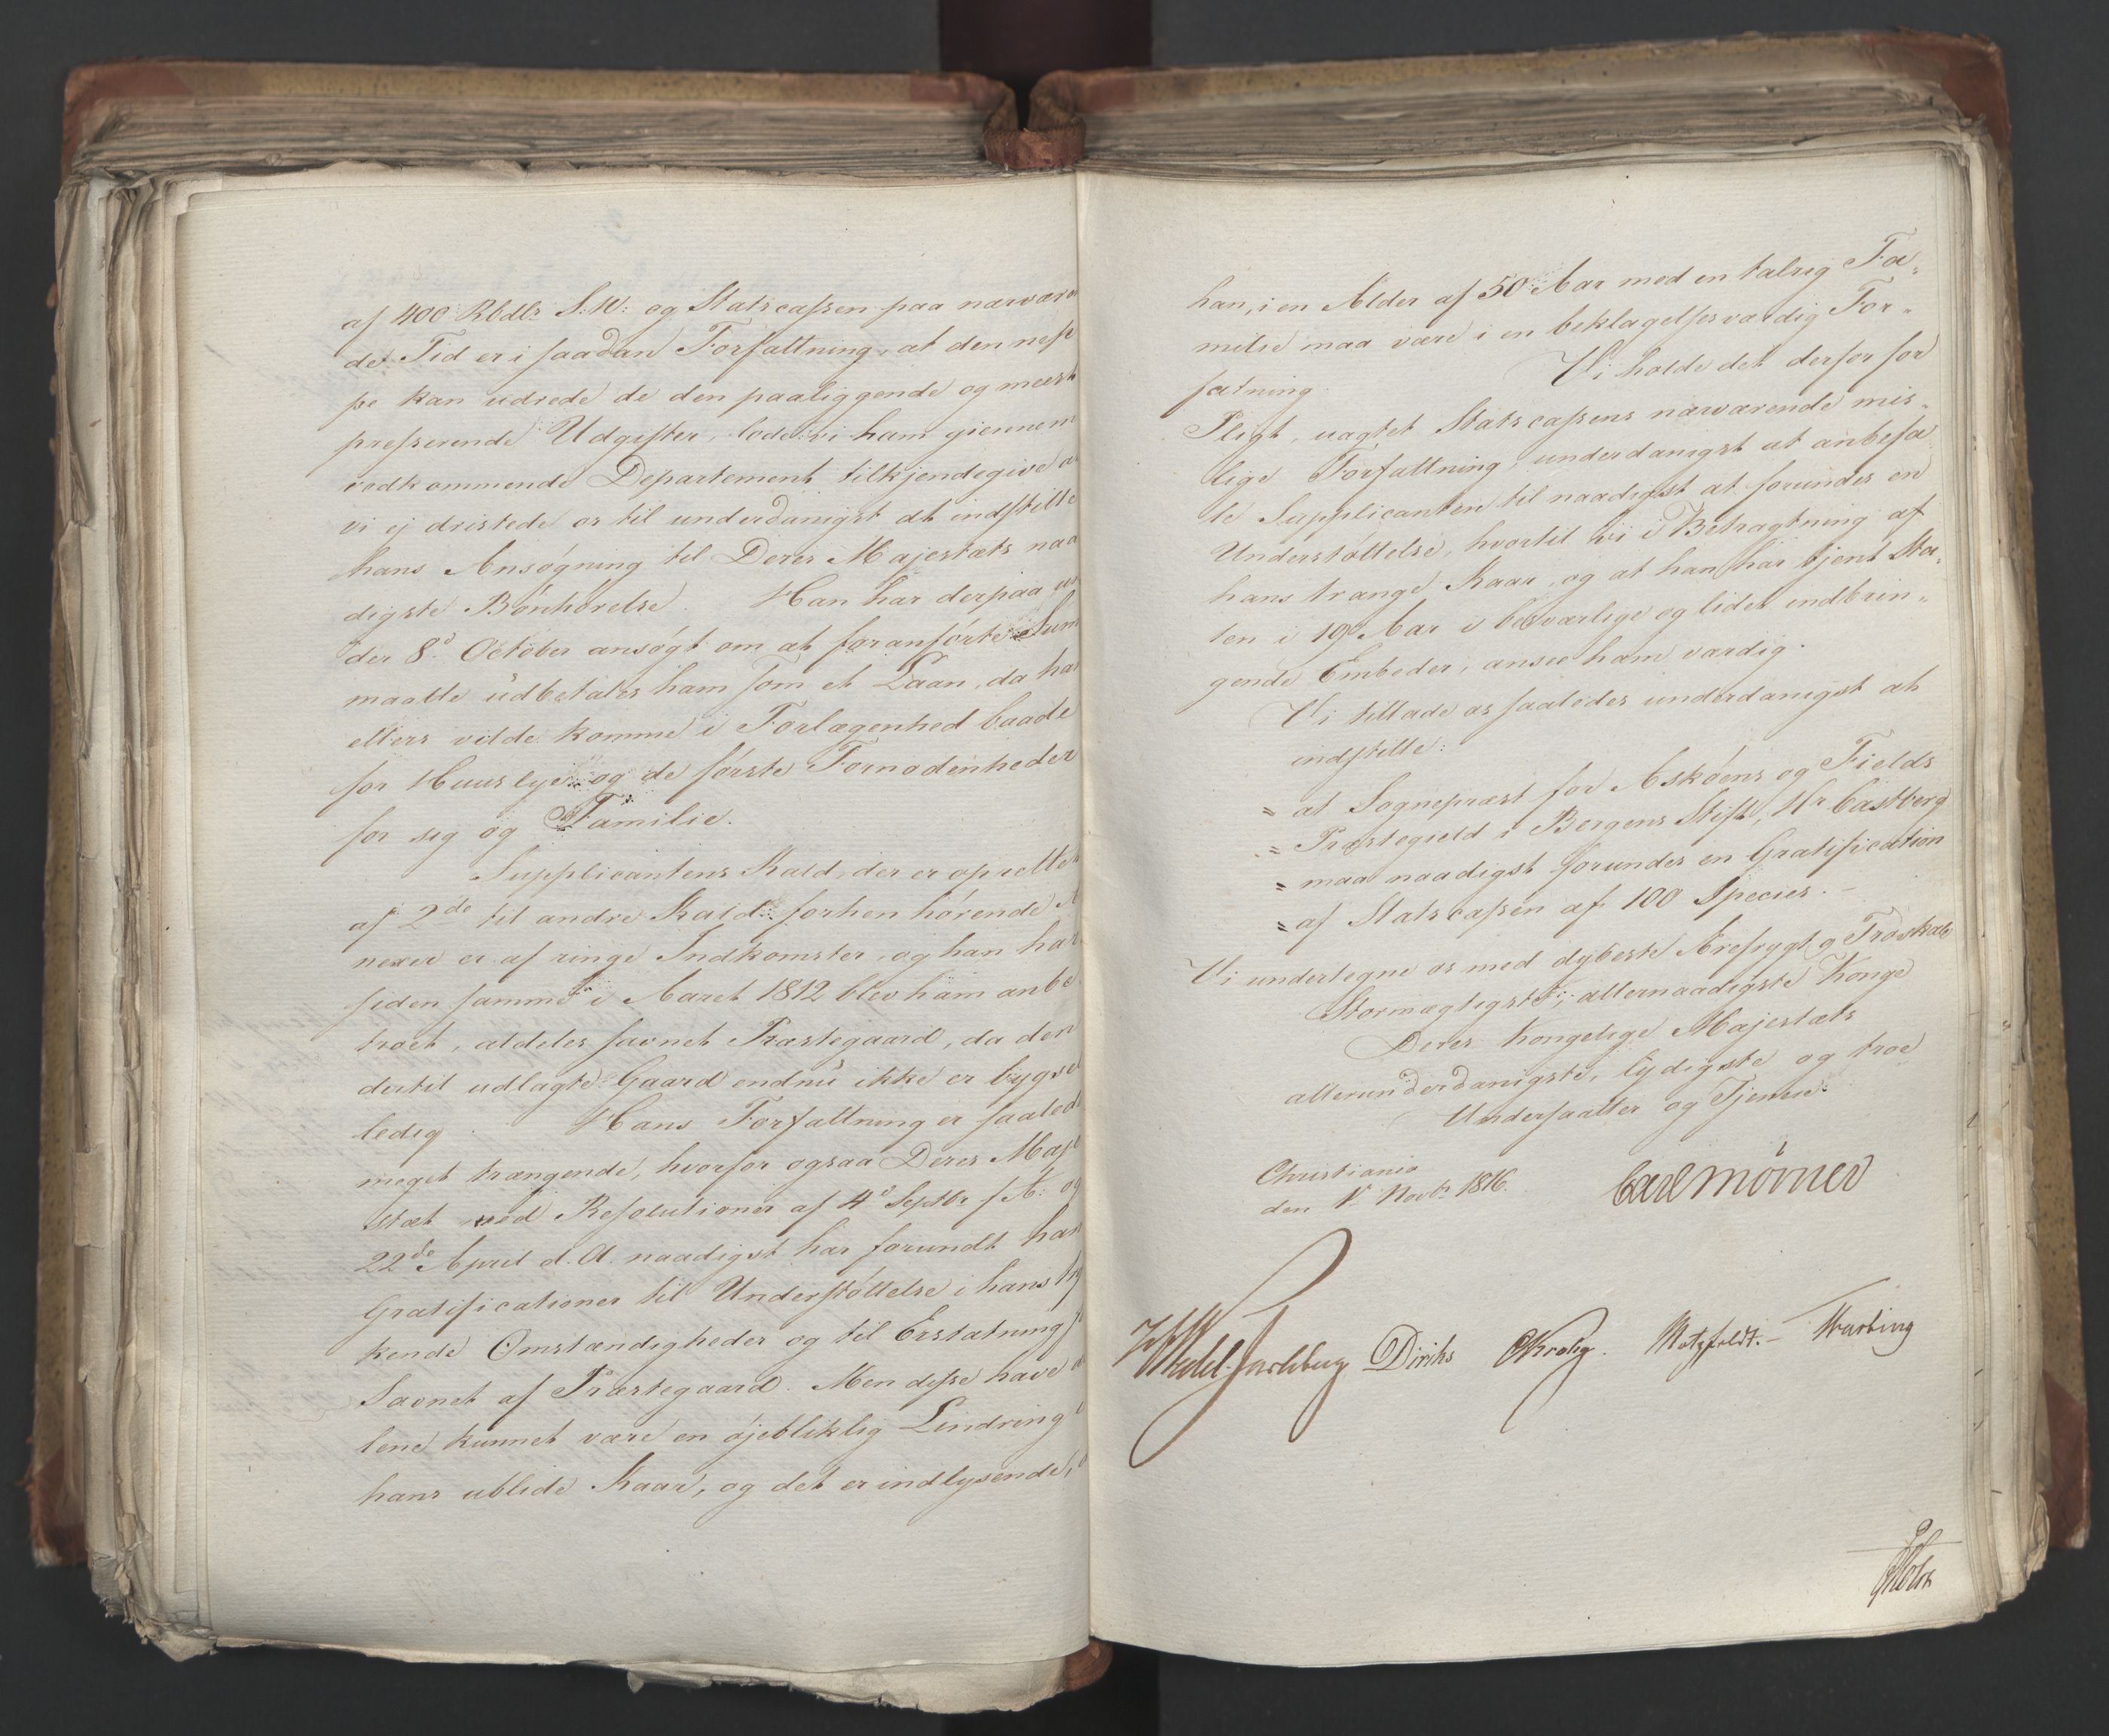 af 400 Rbdlr S.W: og Statscassen paa nærværen
de Tid er i saadan Forfattning, at den nep
pe kan udrede de den paaliggende og meest
presserende Udgifter, lode vi ham giennem
vedkommende Departement tilkjendegive a
vi ej dristede os til underdanigst at indstille
hans Ansøgning til Deres Majestæts naa
digste Bønhørelse. Han har derpaa un
der 8de October ansøgt om at foranførte Sum
maatte udbetales ham som et Laan, da han
ellers vilde komme i Forlægenhed baade
for Huuslye og de første Fornødenheder
for sig og Familie.
Supplicantens Kald, der er oprettet
af 2de til andre Kald forhen hørende A
nexer er af ringe Indkomster, og han har
siden samme i Aaret 1812 blev ham anbe
troet, aldeles savnet Præstegaard, da den
dertil udlagte Gaard endnu ikke er bygsel
ledig. Hans Forfattning er saaled
meget trængende, hvorfor ogsaa Deres Maj
stæt ved Resolutioner af 4de Septbr f. A: og
22de April d. A. naadigst har forundt ham
Gratificationer til Understøttelse i hans try
kende Omstændigheder og til Erstatning f
Savnet af Præstegaard. Men disse have a
lene kunnet være en øjebliklig Lindring i
hans ublide Kaar, og det er indlysende, a
han, i en Alder af 50 Aar med en talrig Fa-
milie maa være i en beklagelsesværdig For-
fatning. Vi holde det derfor for
Pligt, uagtet Statscassens nærværende mis-
lige Forfattning, underdanigst at anbefa
le Supplicanten til naadigst at forundes en
Understøttelse, hvortil vi i Betragtning af
hans trange Kaar, og at han har tjent Sta-
ten i 19 Aar i besværlige og lidet indbrin-
gende Embeder, ansee ham værdig.
Vi tillade os saaledes underdanigst at
indstille:
" at Sognepræst for Askøens og Fields
" Præstegield i Bergens Stift, Hr Castberg
" maa naadigst forundes en Gratification
" af Statscassen af 100 Species. -
Vi undertegne os med dybeste Ærefrygt og Troskab
Stormægtigste, allernaadigste Konge
Deres Kongelige Majestæts
allerunderdanigste, lydigste og troe
Undersaatter og Tjenere.
Christiania
den 1st Novbr 1816.
Carl Mörner
Wedel Jarlsberg Diriks CKrohg. Motzfeldt. -
Holst